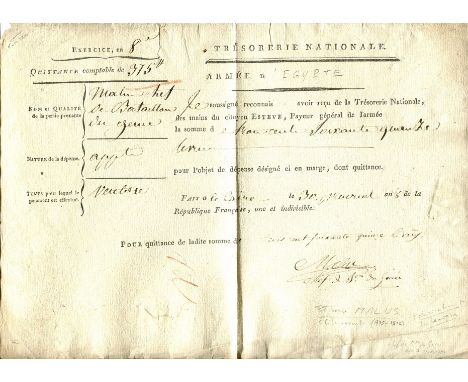 EXERCICE, en 8e
TRÉSORERIE NATIONALE.
QUITTANCE comptable de 375
ARMÉE D'EGYPTE
NOM ET QUALITÉ
de la partie prenante
Malus chef
de Bataillon
du genie
Je soussigné reconnais avoir reçu de la Trésorerie Nationale,
des mains du citoyen ESTEVE, Payeur général de l'armée
la somme de trois cent soixante quinze
livres
NATURE de la dépense.
appts
pour l'objet de dépense désigné ci en marge, dont quittance.
TEMPS pour lequel le
paiement est effectué.
Ventose
FAIT à le Caire le 30 an 8 de la
République Française, une et indivisible.
POUR quittance de ladite somme de trois cent soixante quinze livres
Malus
chef de Bon du génie
MALUS